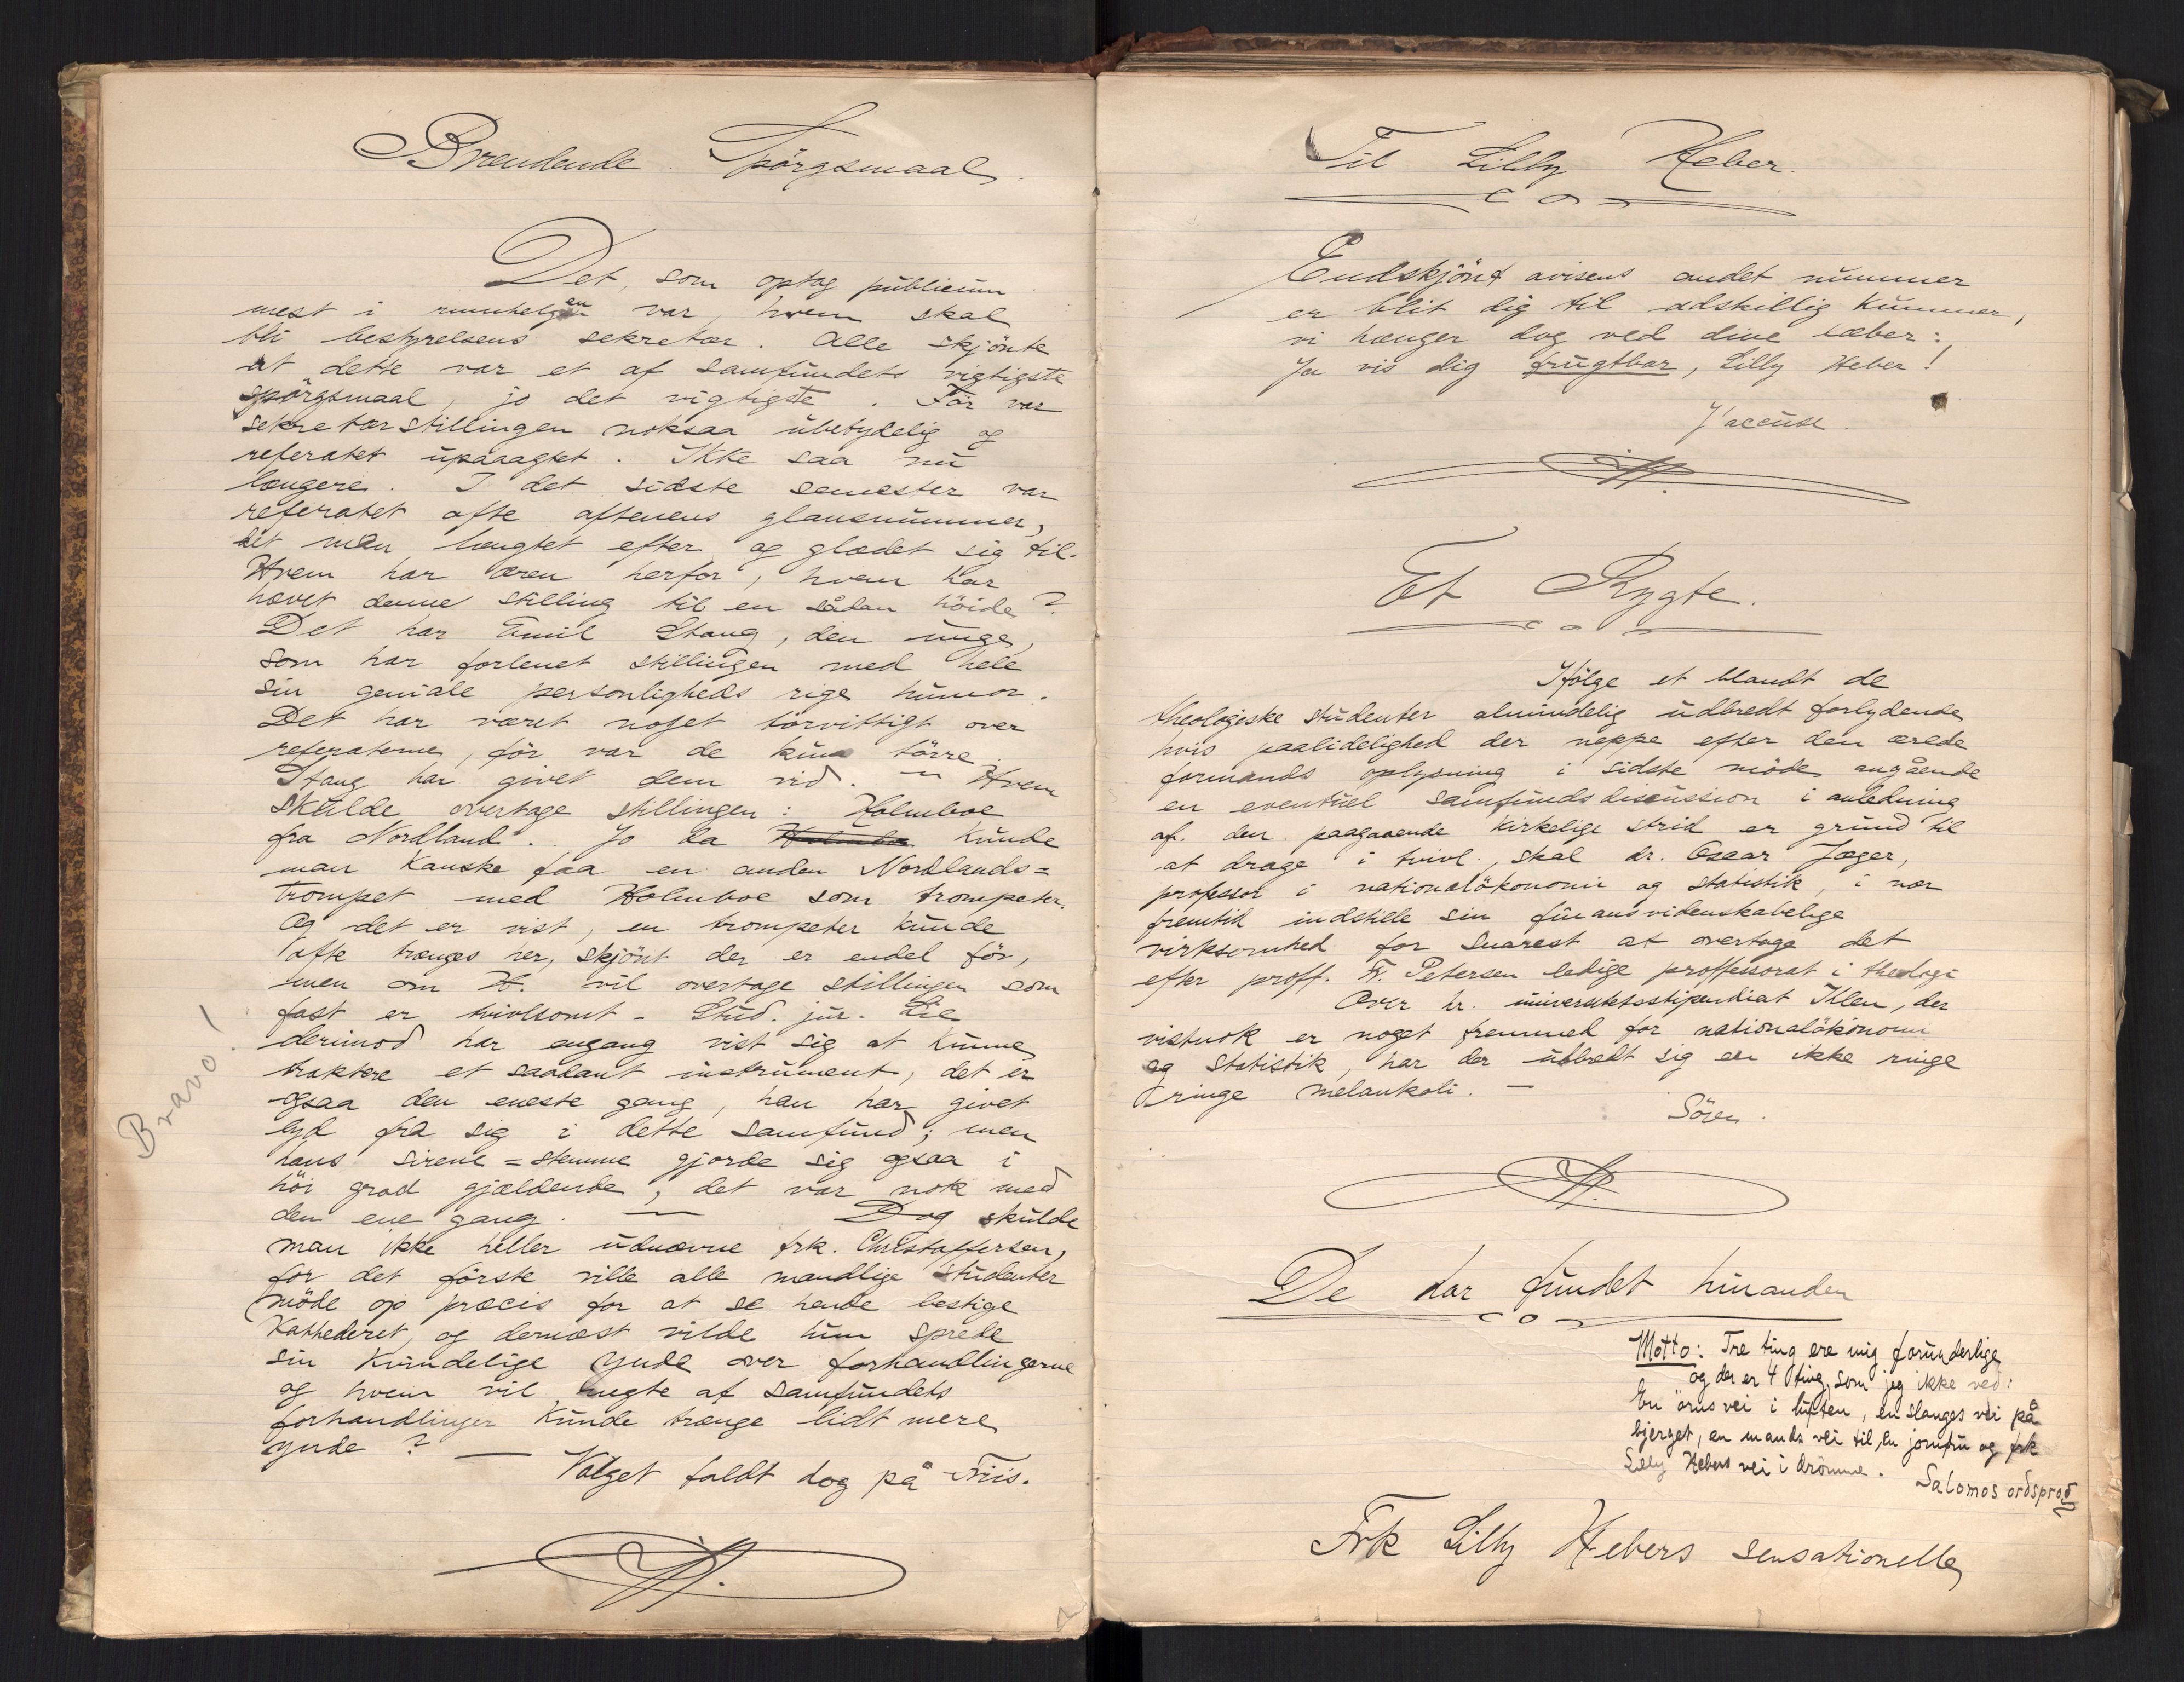 Brændende Spörgsmaal.
Det, som optog publicum
mest i mumhelgen var, hvem skal
bli bestyrelsens sekretær. Alle skjönte
at dette var et af Samfundets vigtigste
spörgsmaal, jo det vigtigste. För var
sekretærstillingen noksaa ubetydelig og
referatet upaaagtet. Ikke saa nu
længere. I det sidste semester var
referatet ofte aftenens glansnummer,
det man længtet efter og glædet sig til.
Hvem har æren herfor, hvem har
hævet denne stilling til en sådan höide?
Det har Emil Stang, den unge,
som har forlenet stillingen med hele
sin geniale personligheds rige humor.
Det har været noget törvittigt over
referaterne, för var de kun törre.
Stang har givet dem vid. — Hvem
skulde overtage stillingen: Holmboe
fra Nordland. Jo da kunde
man kanske faa en anden Nordlands=
trompet med Holmboe som trompeter.
Og det er vist, en trompeter kunde
ofte trænges her, skjönt der er endel för,
men om H. vil overtage stillingen som
fast er tvivlsomt - Stud. jur. Lie
derimod har engang vist sig at kunne
traktere et saadant instrument, det er
ogsaa den eneste gang, han har givet
lyd fra sig i dette samfund; men
hans sirene=stemme gjorde sig ogsaa i
höi grad gjældende, det var nok med
den ene gang. — Dog skulde
man ikke heller udnævne frk. Christoffersen,
for det förste ville alle mandlige studenter
möde op præcis for at se hende bestige
Kathederet, og dernæst vilde hun sprede
sin kvindelige ynde over forhandlingerne
og hvem vil negte at samfundets
forhandlinger kunde trænge lidt mere
ynde? —
Valget faldt dog på Friis.
Bravo!
Til Lilly Heber.
Endskjönt avisens andet nummer
er blit dig til adskillig kummer,
vi hænger dog ved dine læber:
Ja vis dig frugtbar, Lilly Heber!
J'accuse.
Et Rygte.
Ifölge et blandt de
theologiske studenter almindelig udbredt forlydende
hvis paalidelighed der neppe efter den ærede
formands oplysning i sidste möde angående
en eventuel samfundsdiscussion i anledning
af den paagaaende kirkelige strid er grund til
at drage i tvivl, skal dr. Oscar Jæger,
professor i nationalökonomi og statistik, i nær
fremtid indstille sin finansvidenskabelige
virksomhed for snarest at overtage det
efter proff. Fr. Petersen ledige proffessorat i theologi
Over hr. universitetsstipendiat Ihlen, der
vistnok er noget fremmed for nationalökonomi
og statistik, har der udbredt sig en ikke ringe
ringe melankoli. —
Sören.
De har fundet hinanden
Motto: Tre ting ere mig forunderlige
og der er 4 ting, som jeg ikke ved:
En örns vei i luften, en slanges vei på
bjerget, en mands vei til en jomfru og frk
Lilly Hebers vei i drömme.
Salomos ordsprog
Frk Lilly Hebers sensationelle